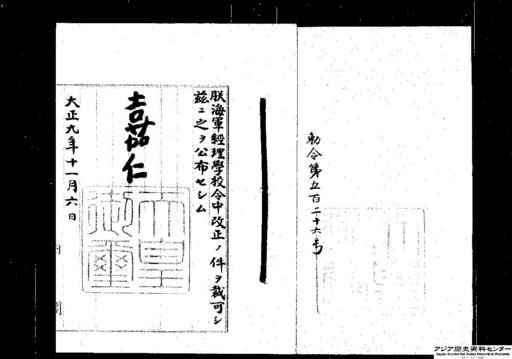 勅令第五百二十六号
朕海軍經理學校令中改正ノ件ヲ裁可シ
茲ニ之ヲ公布セシム
嘉仁
天皇
御璽
大正九年十一月六日
内閣
アジア歴史資料センター
Japan Center for Asian Historical Records